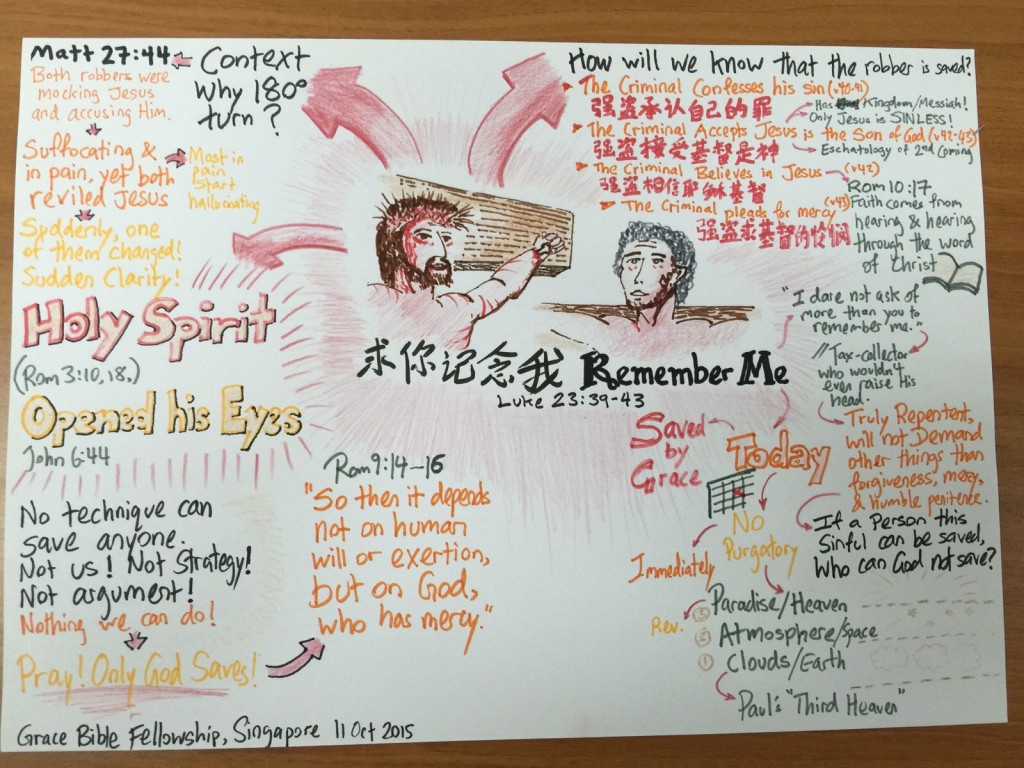 Matt 27:44
Both robbers were
mocking Jesus
and accusing Him.
Context
Why 180°
turn?
Suffocating &
in pain, yet both
reviled Jesus
Most in
pain
start
hallucinating
Suddenly, one
of them changed!
Sudden Clarity!
Holy Spirit
(Rom 3:10, 18,)
Opened his Eyes
John 6:44
No technique can
save anyone.
Not us! Not Strategy!
Not argument!
Nothing we can do!
Pray! Only God Saves!
Rom 9:14-16
"So then it depends
not on human
will or exertion,
but on God,
who has mercy."
求你记念我 Remember Me
Luke 23:39-43
How will we know that the robber is saved?
The Criminal Confesses his sin (v40-41)
强盗承认自己的罪
Has Kingdom/Messiah!
Only Jesus is SINLESS!
The Criminal Accepts Jesus is the Son of God (v42-43)
强盗接受基督是神
Eschatology of 2nd Coming
The Criminal Believes in Jesus (v42)
强盗相信耶稣基督
The Criminal pleads for mercy (v43)
强盗求基督的怜悯
Rom 10:17
Faith comes from
hearing & hearing
through the word
of Christ
"I dare not ask of
more than you to
remember me."
// Tax-collector
who wouldn't
even raise His
head.
Truly Repentent,
will not Demand
other things than
forgiveness, mercy,
& humble penitence.
If a Person this
Sinful can be saved,
Who can God not save?
Saved
by
Grace
Today
No
Purgatory
Immediately
Rev.
③ Paradise/Heaven
② Atmosphere/Space
① Clouds/Earth
Paul's "Third Heaven"
Grace Bible Fellowship, Singapore 11 Oct 2015